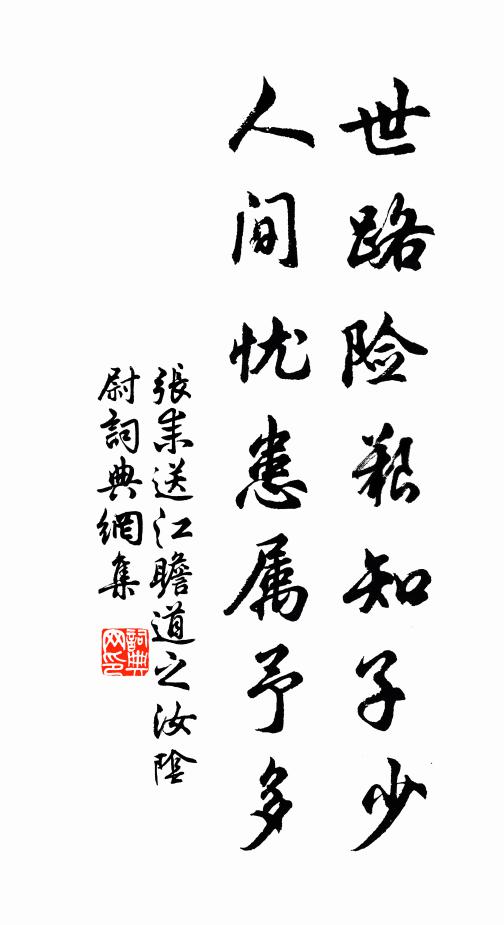 世路险艰知子少
人间忧患属予多
張耒送江瞻道之汝陰
尉詞典網集
詞典网印